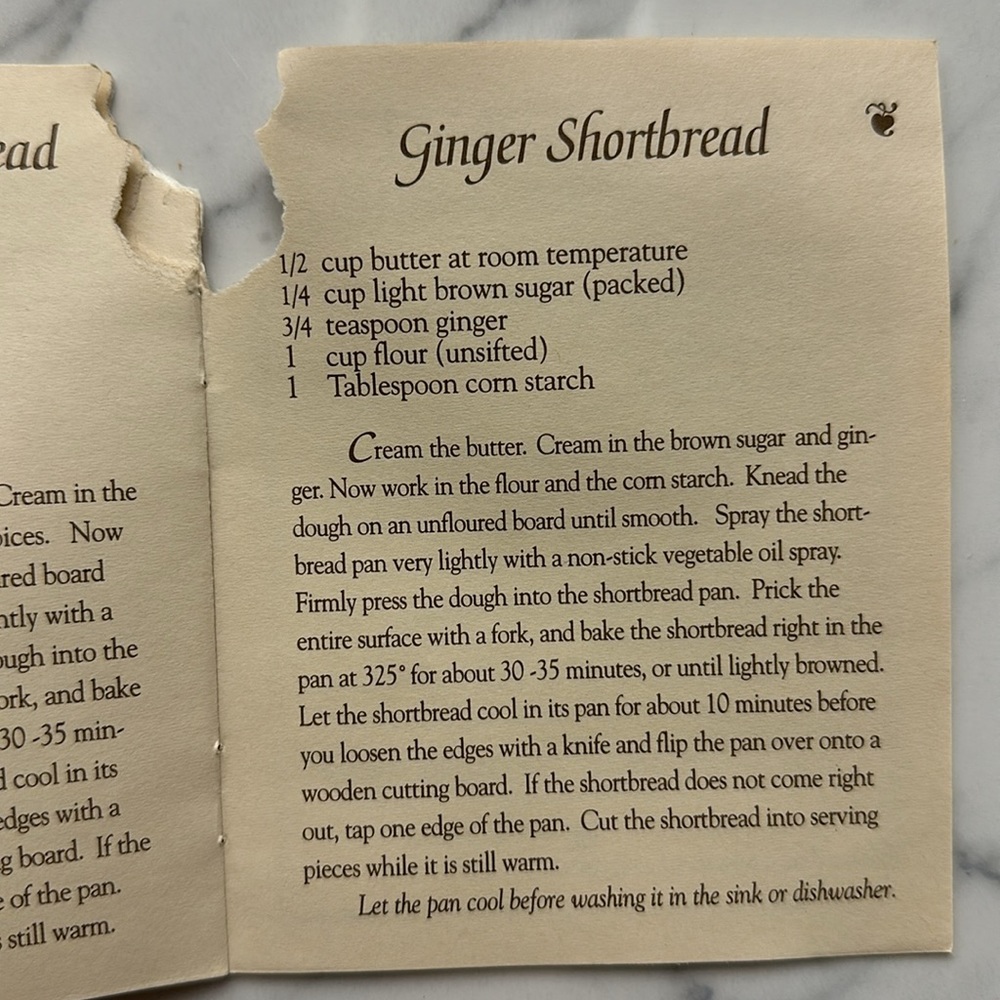 Cream in the
Now
board
with a
into the
and bake
30 -35 min-
cool in its
with a
board. If the
of the pan.
still warm.
Ginger Shortbread
1/2 cup butter at room temperature
1/4 cup light brown sugar (packed)
3/4 teaspoon ginger
1 cup flour (unsifted)
1 Tablespoon corn starch
Cream the butter. Cream in the brown sugar and gin-
ger. Now work in the flour and the corn starch. Knead the
dough on an unfloured board until smooth. Spray the short-
bread pan very lightly with a non-stick vegetable oil spray.
Firmly press the dough into the shortbread pan. Prick the
entire surface with a fork, and bake the shortbread right in the
pan at 325° for about 30 -35 minutes, or until lightly browned.
Let the shortbread cool in its pan for about 10 minutes before
you loosen the edges with a knife and flip the pan over onto a
wooden cutting board. If the shortbread does not come right
out, tap one edge of the pan. Cut the shortbread into serving
pieces while it is still warm.
Let the pan cool before washing it in the sink or dishwasher.